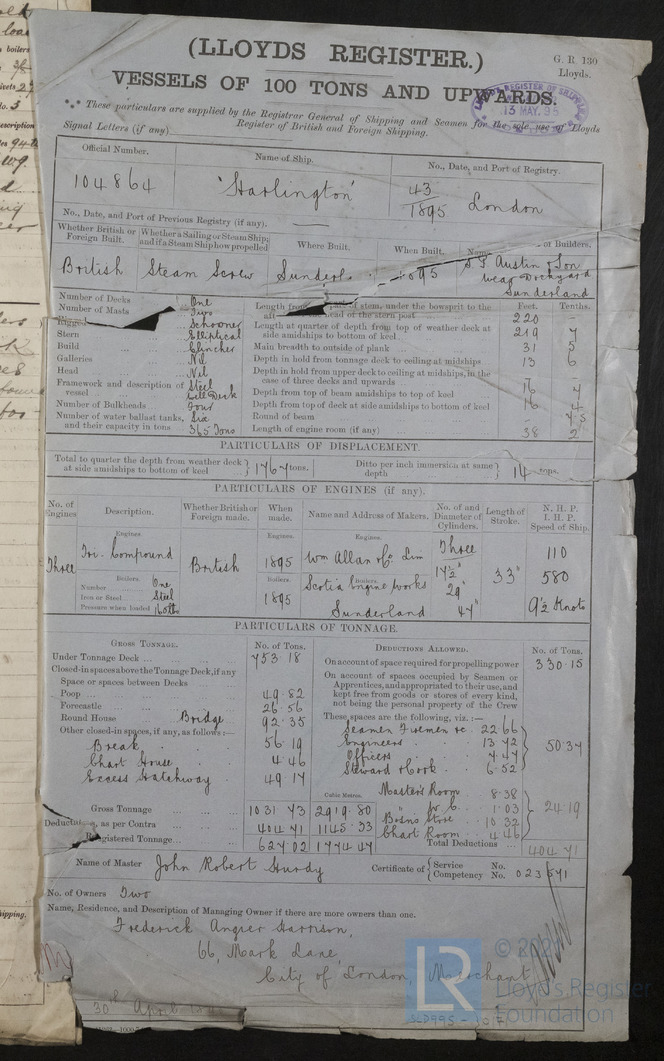 (LLOYDS REGISTER.)
G. R. 130
Lloyds.
VESSELS OF 100 TONS AND UPWARDS.
LLOYD'S REGISTER OF SHIPPING
13 MAY. 95
These particulars are supplied by the Registrar General of Shipping and Seamen for the sole use of Lloyds
Register of British and Foreign Shipping.
Signal Letters (if any)
Official Number. Name of Ship. No., Date, and Port of Registry.
104864 'Harlington' 43/1895 London
No., Date, and Port of Previous Registry (if any).
Whether British or Foreign Built. Whether a Sailing or Steam Ship; and if a Steam Ship how propelled Where Built. When Built. Builders.
British Steam Screw Sunderl 1895 S P Austin & Son
Wear Dockyard
Sunderland
Number of Decks One
Number of Masts Two
Rigged Schooner
Stern Elliptical
Build Clincher
Galleries Nil
Head Nil
Framework and description of vessel Steel
Well Deck
Number of Bulkheads Four
Number of water ballast tanks, and their capacity in tons Six
365 Tons
Feet. Tenths.
Length from of stem, under the bowsprit to the aft head of the stern post 220
Length at quarter of depth from top of weather deck at side amidships to bottom of keel 219 7
Main breadth to outside of plank 31 5
Depth in hold from tonnage deck to ceiling at midships 13 6
Depth in hold from upper deck to ceiling at midships, in the case of three decks and upwards
Depth from top of beam amidships to top of keel 16 4
Depth from top of deck at side amidships to bottom of keel 16 4
Round of beam
Length of engine room (if any) 38 2
PARTICULARS OF DISPLACEMENT.
Total to quarter the depth from weather deck at side amidships to bottom of keel 1767 tons. Ditto per inch immersion at same depth 14 tons.
PARTICULARS OF ENGINES (if any).
No. of Engines Description. Whether British or Foreign made. When made. Name and Address of Makers. No. of and Diameter of Cylinders. Length of Stroke. N. H. P. I. H. P. Speed of Ship.
Engines Engines. Engines.
Three Tri-Compound British 1895 Wm Allan & Co Lim Three 110
Boilers. Boilers. Boilers.
Number One
Iron or Steel Steel
Pressure when loaded 160 lbs
1895 Scotia Engine Works
Sunderland
17½"
29"
47"
33"
580
9½ Knots
PARTICULARS OF TONNAGE.
GROSS TONNAGE. No. of Tons.
Under Tonnage Deck 753.18
Closed-in spaces above the Tonnage Deck, if any
Space or spaces between Decks
Poop 49.82
Forecastle 26.56
Round House Bridge 92.35
Other closed-in spaces, if any, as follows:—
Break 56.19
Chart House 4.46
Excess Hatchway 49.17
Cubic Metres.
Gross Tonnage 1031.73 2919.80
Deductions, as per Contra 404.71 1145.33
Registered Tonnage 627.02 1774.47
DEDUCTIONS ALLOWED. No. of Tons.
On account of space required for propelling power 330.15
On account of spaces occupied by Seamen or Apprentices, and appropriated to their use, and kept free from goods or stores of every kind, not being the personal property of the Crew
These spaces are the following, viz.:—
Seamen Firemen &c 22.66
Engineers 13.72
Officers 7.47
Steward & Cook 6.52
50.37
Master's Room 8.38
" W C 1.03
Bosns Store 10.32
Chart Room 4.46
24.19
Total Deductions 404.71
Name of Master John Robert Hurdy Certificate of Service No.
Competency No. 023571
No. of Owners Two
Name, Residence, and Description of Managing Owner if there are more owners than one.
Frederick Angier Harrison,
66, Mark Lane,
City of London, Merchant
30th April
LR
© 2021
Lloyd's Register
Foundation